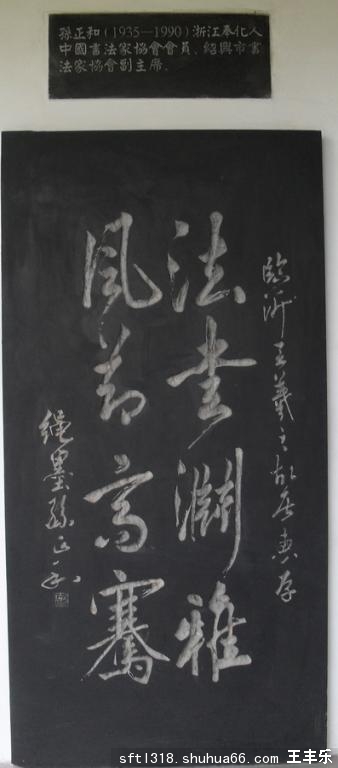 孫正和（1935—1990）浙江奉化人
中國書法家協會會員、紹興市書
法家協會副主席。
臨沂王羲之故居惠存
法書淵雅
風節高騫
繩墨孫正和
sftl318.shuhua66.com 王丰乐